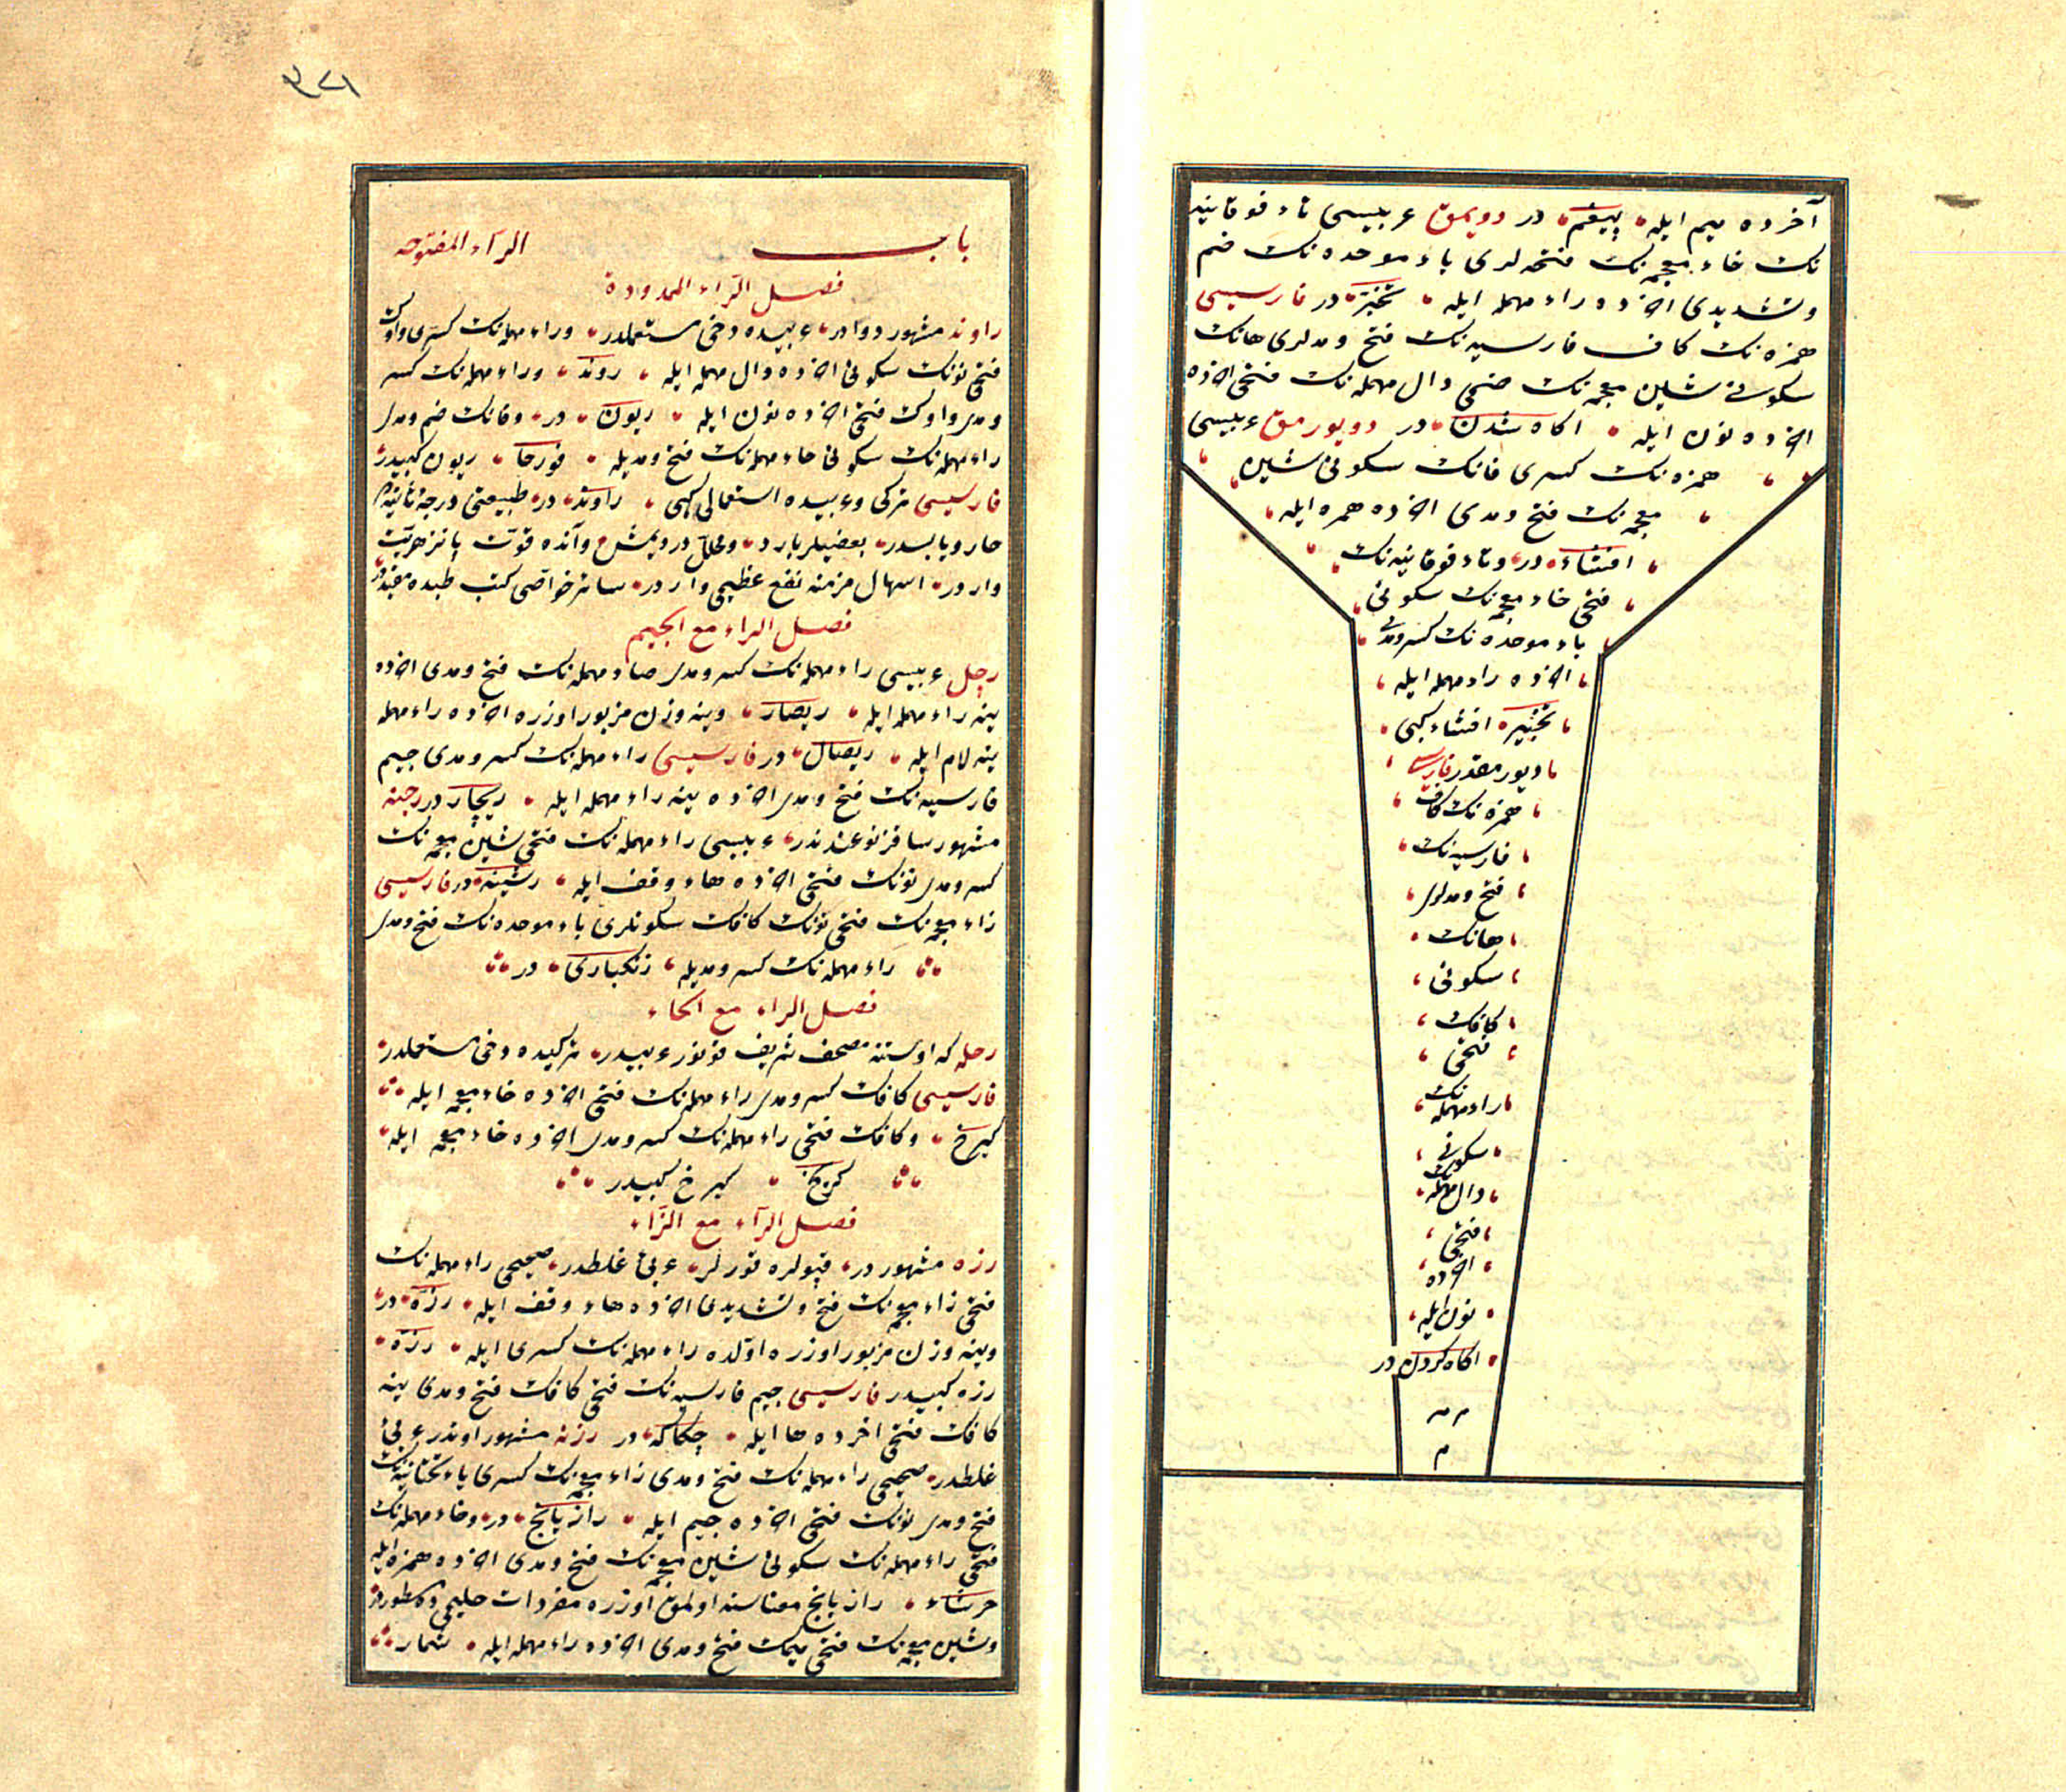 آخرده ميم ايله پيغم در دويمق عربيسى تاء فوقانيه
نك خاء معجمه نك فتحه لرى باء موحده نك ضم
وتشديدى اخرده راء مهمله ايله تخبر در فارسيسى
همزه نك كاف فارسيه نك فتح ومدلرى هانك
سكونى شين معجمه نك ضمى دال مهمله نك فتحى اخرده
اخرده نون ايله اكاه شدن در دويورمق عربيسى
همزه نك كسرى فانك سكونى شين
معجمه نك فتح ومدى اخرده همزه ايله
افشاء در وتاء فوقانيه نك
فتحى خاء معجمه نك سكونى
باء موحده نك كسر ومدى
اخرده راء مهمله ايله
تخبير افشاء كبى
دويورمقدر فارسيسى
همزه نك كاف
فارسيه نك
فتح ومدلرى
هانك
سكونى
كافك
فتحى
راء مهمله نك
سكونى
دال مهمله نك
فتحى
اخرده
نون ايله
اكاه كردن در
م م
م
۹۲۱
باب الراء المفتوحه
فصل الراء الممدودة
راوند مشهور دوادر عربيده دخى مستعملدر وراء مهمله نك كسرى واوك
فتحى نونك سكونى اخرده دال مهمله ايله روند وراء مهمله نك كسر
ومدى واوك فتحى اخرده نون ايله ريون در وفانك ضم ومدى
راء مهمله نك سكونى حاء مهمله نك فتح ومديله فورحا ريون كبيدر
فارسيسى تركى وعربيده استعمالى كبى راوند در طبيعتى درجۀ ثانيه ده
حار ويابسدر بعضيلر بارد ومحلل در ديمش وآنده قوت پانزهريت
واردر اسهال مزمنه نفع عظيمى واردر سائر خواصى كتب طبده مقيددر
فصل الراء مع الجيم
رچل عربيسى راء مهمله نك كسر ومدى صاد مهمله نك فتح ومدى اخرده
ينه راء مهمله ايله ريصار وينه وزن مزبور اوزره اخرده راء مهمله
ينه لام ايله ريصال در فارسيسى راء مهمله نك كسر ومدى جيم
فارسيه نك فتح ومدى اخرده ينه راء مهمله ايله ريچار در رچنه
مشهور ساقز نوعندندر عربيسى راء مهمله نك فتحى شين معجمه نك
كسر ومدى نونك فتحى اخرده هاء وقف ايله رشينه در فارسيسى
زاء معجمه نك فتحى نونك كافك سكونلرى باء موحده نك فتح ومدى
راء مهمله نك كسر ومديله زنكبارى در
فصل الراء مع الحاء
رحله كه اوستنه مصحف شريف قونور عربيدر تركيده دخى مستعملدر
فارسيسى كافك كسر ومدى راء مهمله نك فتحى اخرده خاء معجمه ايله
كيرخ وكافك فتحى راء مهمله نك كسر ومدى اخرده خاء معجمه ايله
كريخ كيرخ كبيدر
فصل الرآء مع الزاء
رزه مشهوردر قپولره قورلر عربئ غلطدر صحيحى راء مهمله نك
فتحى زاء معجمه نك فتح وتشديدى اخرده هاء وقف ايله رزه در
وينه وزن مزبور اوزره اولده راء مهمله نك كسرى ايله رزه
رزه كبيدر فارسيسى جيم فارسيه نك فتحى كافك فتح ومدى ينه
كافك فتحى اخرده ها ايله چكاكه در رزنه مشهور اوتدر عربئ
غلطدر صحيحى راء مهمله نك فتح ومدى زاء معجمه نك كسرى ياء تحتانيه نك
فتح ومدى نونك فتحى اخرده جيم ايله رازيانج در وحاء مهمله نك
فتحى راء مهمله نك سكونى شين معجمه نك فتح ومدى اخرده همزه ايله
حرشاء رازيانج معناسنه اولمق اوزره مفردات حليمى ده مسطوردر
وشين معجمه نك فتحى ميمك فتح ومدى اخرده راء مهمله ايله شمار